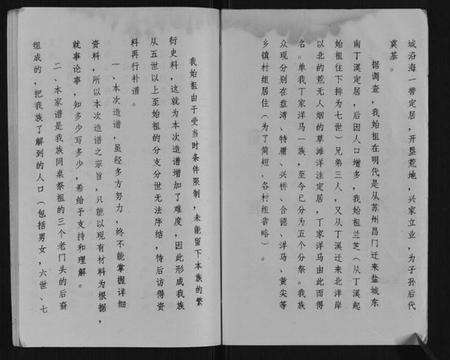 城沿海一带定居，开垦荒地，兴家立业，为子孙后代
奠基。
据调查，我始祖在明代是从苏州昌门迁来盐城东
南丁溪定居，后因人口增多，我始祖兰芝（从丁溪起
始祖往下排为七世）兄弟三人，又从丁溪迁来北洋岸
以北的荒无人烟的草滩洋洼定居，丁家洋马由此而得
名。单我丁家洋马一族，至今已分为五个分祭。我族
众现分别在盘湾、特庸、兴桥、合德、洋马、黄尖等
乡镇村组居住（为了简短，各村组省略）。
我始祖由于受当时条件限制，未能留下本族的繁
衍史料，这就为本次造谱增加了难度，因此形成我族
从五世以上至始祖的分支分世无法序结，待后访得资
料再行补谱。
一、本次造谱，虽经多方努力，终不能掌握详细
资料，所以本次造谱之宗旨，只能以现有材料为根据，
就事论事，知多少写多少，希给予支持和理解。
二、本家谱是我族同桌祭祖的三个老门头的后裔
组成的，把我族了解到的人口（包括男女，六世、七